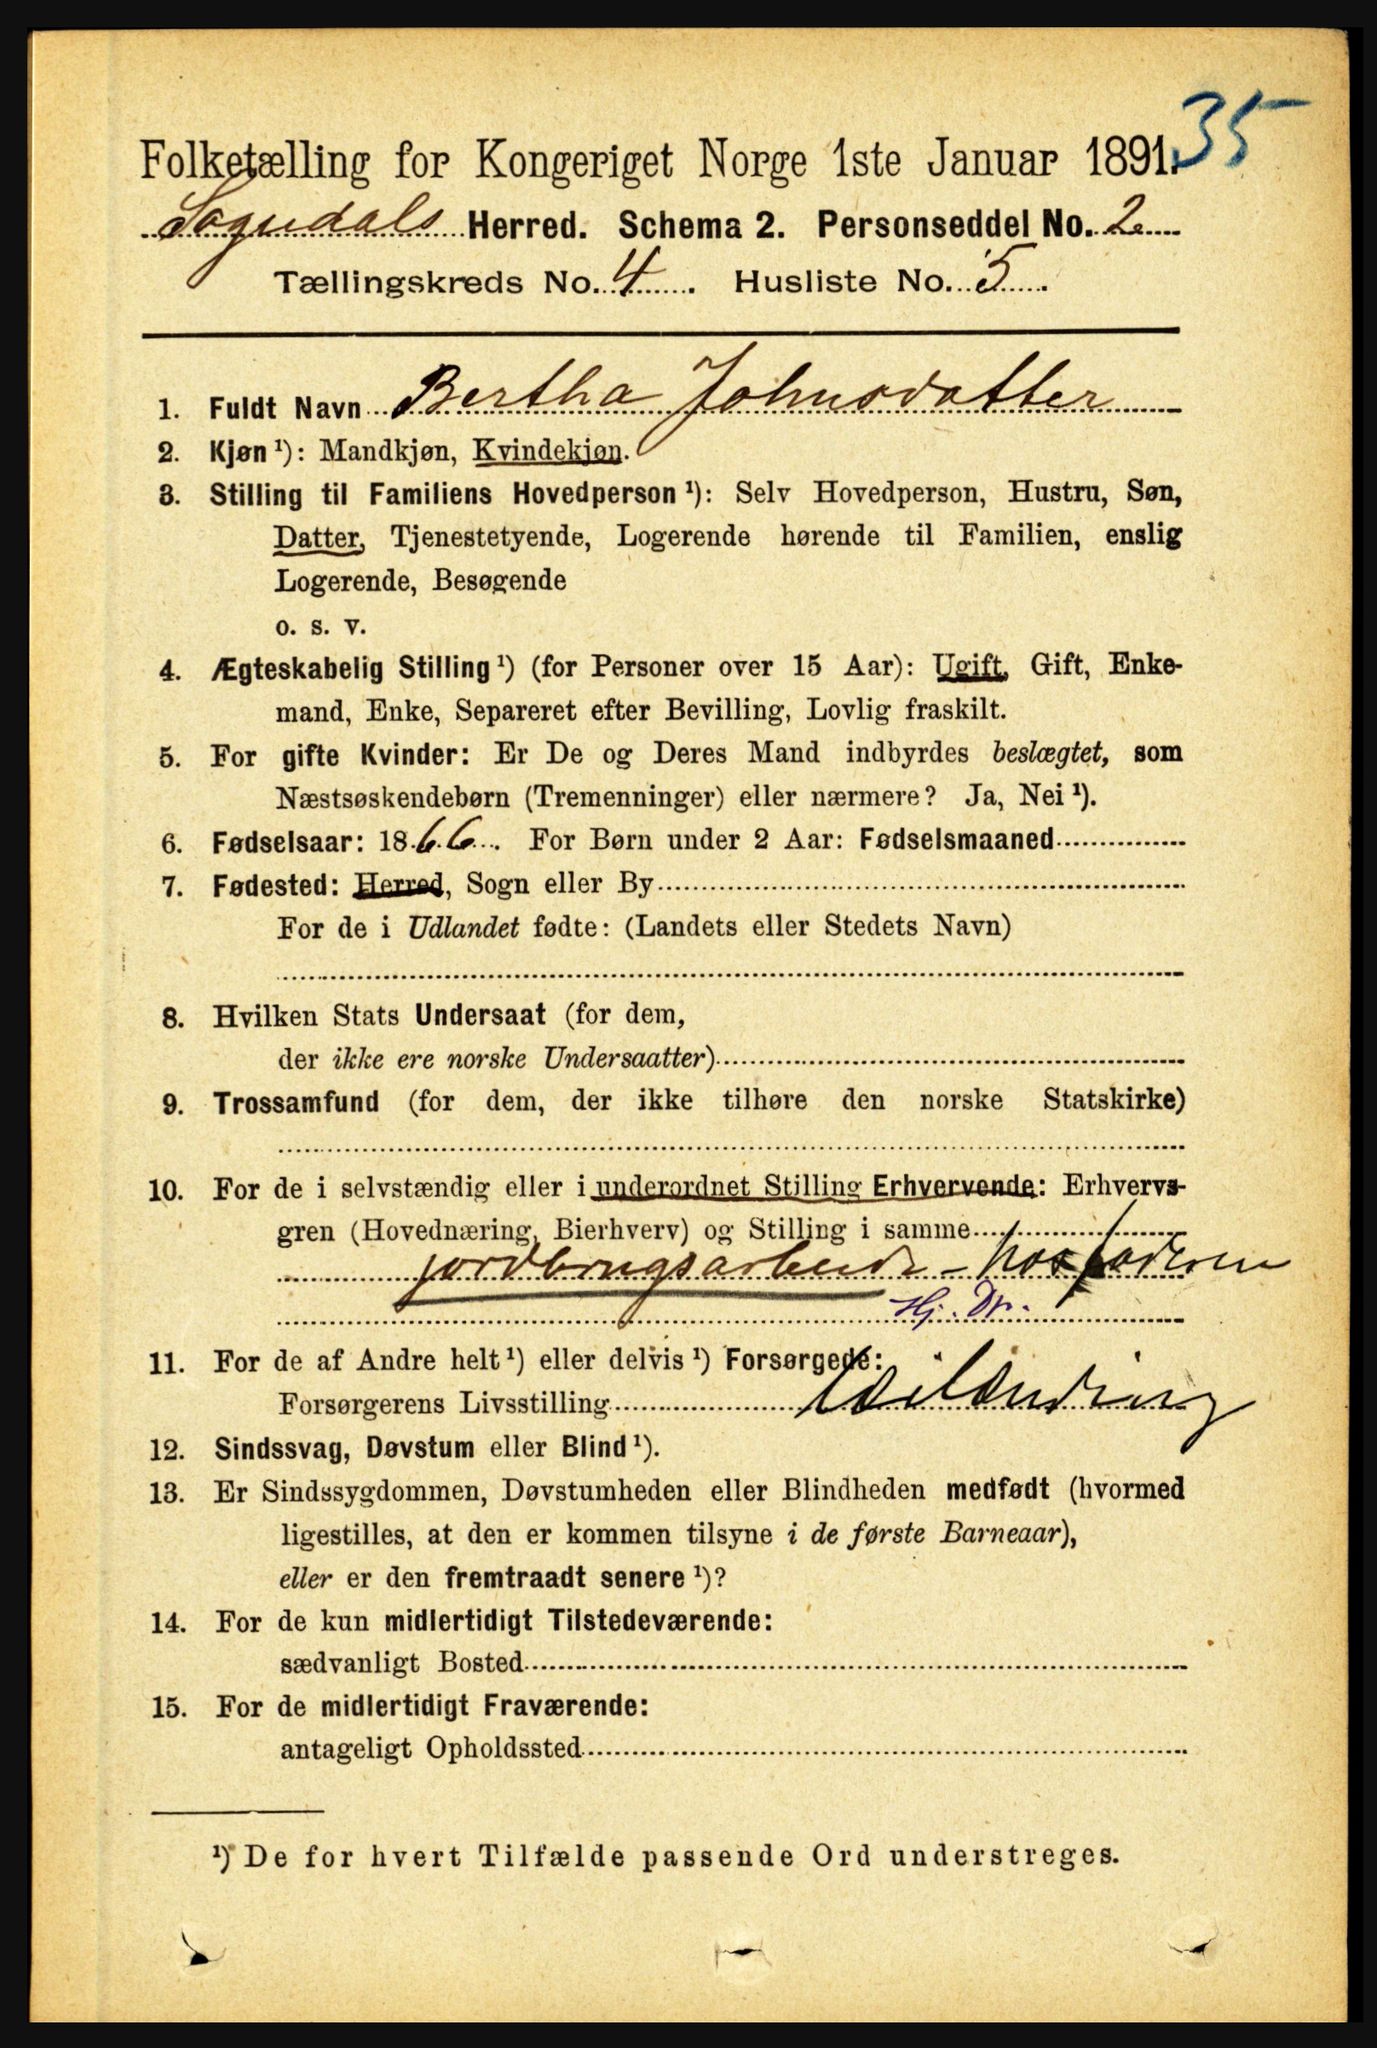 35
Folketælling for Kongeriget Norge 1ste Januar 1891.
Sogndals Herred. Schema 2. Personseddel No. 2
Tællingskreds No. 4. Husliste No. 5.
1. Fuldt Navn Bertha Johnsdatter
2. Kjøn ¹): Mandkjøn, Kvindekjøn.
3. Stilling til Familiens Hovedperson ¹): Selv Hovedperson, Hustru, Søn,
Datter, Tjenestetyende, Logerende hørende til Familien, enslig
Logerende, Besøgende
o. s. v.
4. Ægteskabelig Stilling ¹) (for Personer over 15 Aar): Ugift, Gift, Enke-
mand, Enke, Separeret efter Bevilling, Lovlig fraskilt.
5. For gifte Kvinder: Er De og Deres Mand indbyrdes beslægtet, som
Næstsøskendebørn (Tremenninger) eller nærmere? Ja, Nei ¹).
6. Fødselsaar: 1866. For Børn under 2 Aar: Fødselsmaaned
7. Fødested: Herred, Sogn eller By
For de i Udlandet fødte: (Landets eller Stedets Navn)
8. Hvilken Stats Undersaat (for dem,
der ikke ere norske Undersaatter)
9. Trossamfund (for dem, der ikke tilhøre den norske Statskirke)
10. For de i selvstændig eller i underordnet Stilling Erhvervende: Erhvervs-
gren (Hovednæring, Bierhverv) og Stilling i samme
jordbrugsarbeide - hos faderen
Hj. Dtr.
11. For de af Andre helt ¹) eller delvis ¹) Forsørgede:
Forsørgerens Livsstilling
12. Sindssvag, Døvstum eller Blind ¹).
13. Er Sindssygdommen, Døvstumheden eller Blindheden medfødt (hvormed
ligestilles, at den er kommen tilsyne i de første Barneaar),
eller er den fremtraadt senere ¹)?
14. For de kun midlertidigt Tilstedeværende:
sædvanligt Bosted
15. For de midlertidigt Fraværende:
antageligt Opholdssted
¹) De for hvert Tilfælde passende Ord understreges.